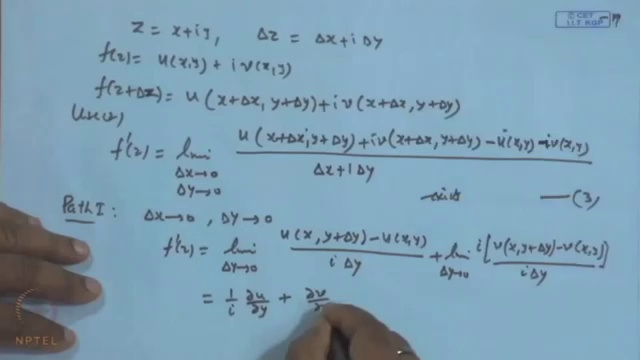 © CET
I.I.T. KGP
z = x+iy, Δz = Δx+iΔy
f(z) = u(x,y) + i v(x,y)
f(z+Δz) = u(x+Δx, y+Δy) + i v(x+Δx, y+Δy)
f'(z) = lim Δx→0 Δy→0 u(x+Δx, y+Δy) + i v(x+Δx, y+Δy) - u(x,y) - i v(x,y) / Δx+iΔy
—(3)
Path I: Δx→0, Δy→0
f'(z) = lim Δy→0 u(x, y+Δy) - u(x,y) / iΔy + lim Δy→0 i[v(x, y+Δy) - v(x,y)] / iΔy
= 1/i ∂u/∂y + ∂v/∂
NPTEL